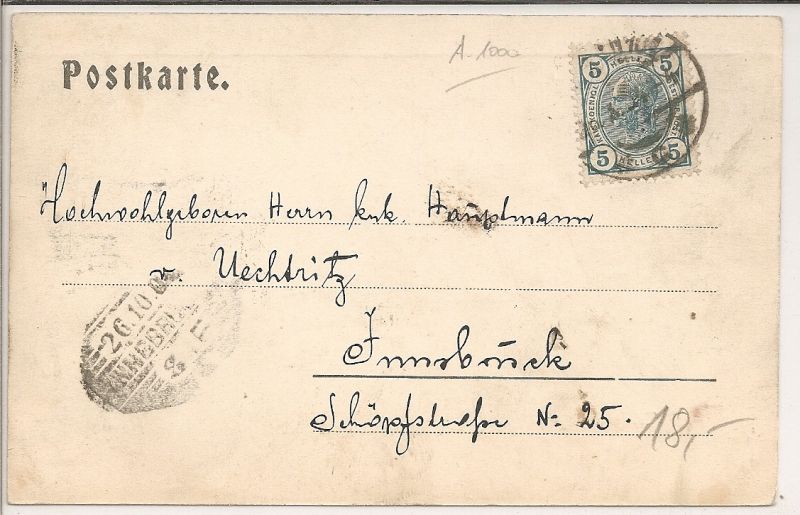 A-1000
Postkarte.
5 HELLER 5
5 HELLER 5
Hochwohlgeboren Herrn kuk. Hauptmann
v. Uechtritz
26.10.0
Innsbruck
Schöpfstraße No 25.
18,-